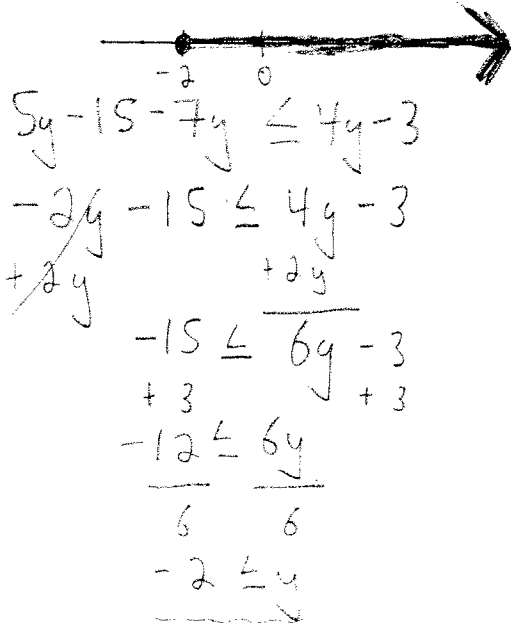 -2 0
5y - 15 - 7y ≤ 4y - 3
-2y - 15 ≤ 4y - 3
+2y +2y
-15 ≤ 6y - 3
+3 +3
-12 ≤ 6y
6 6
-2 ≤ y